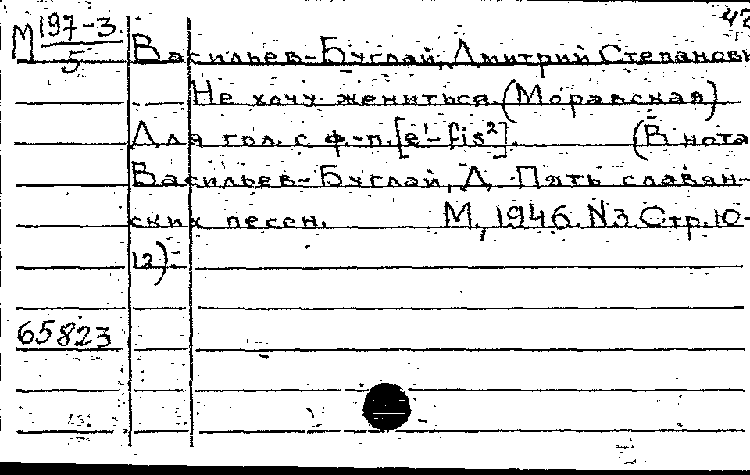 42
М 197-3
5
Васильев-Буглай, Дмитрий Степанови
Не хочу жениться (Моравская)
Для гол. с ф.-п. [e¹-fis²]. (В нота
Васильев-Буглай, Д. Пять славян-
ских песен. М., 1946. N3. Стр. 10-
12).
65823